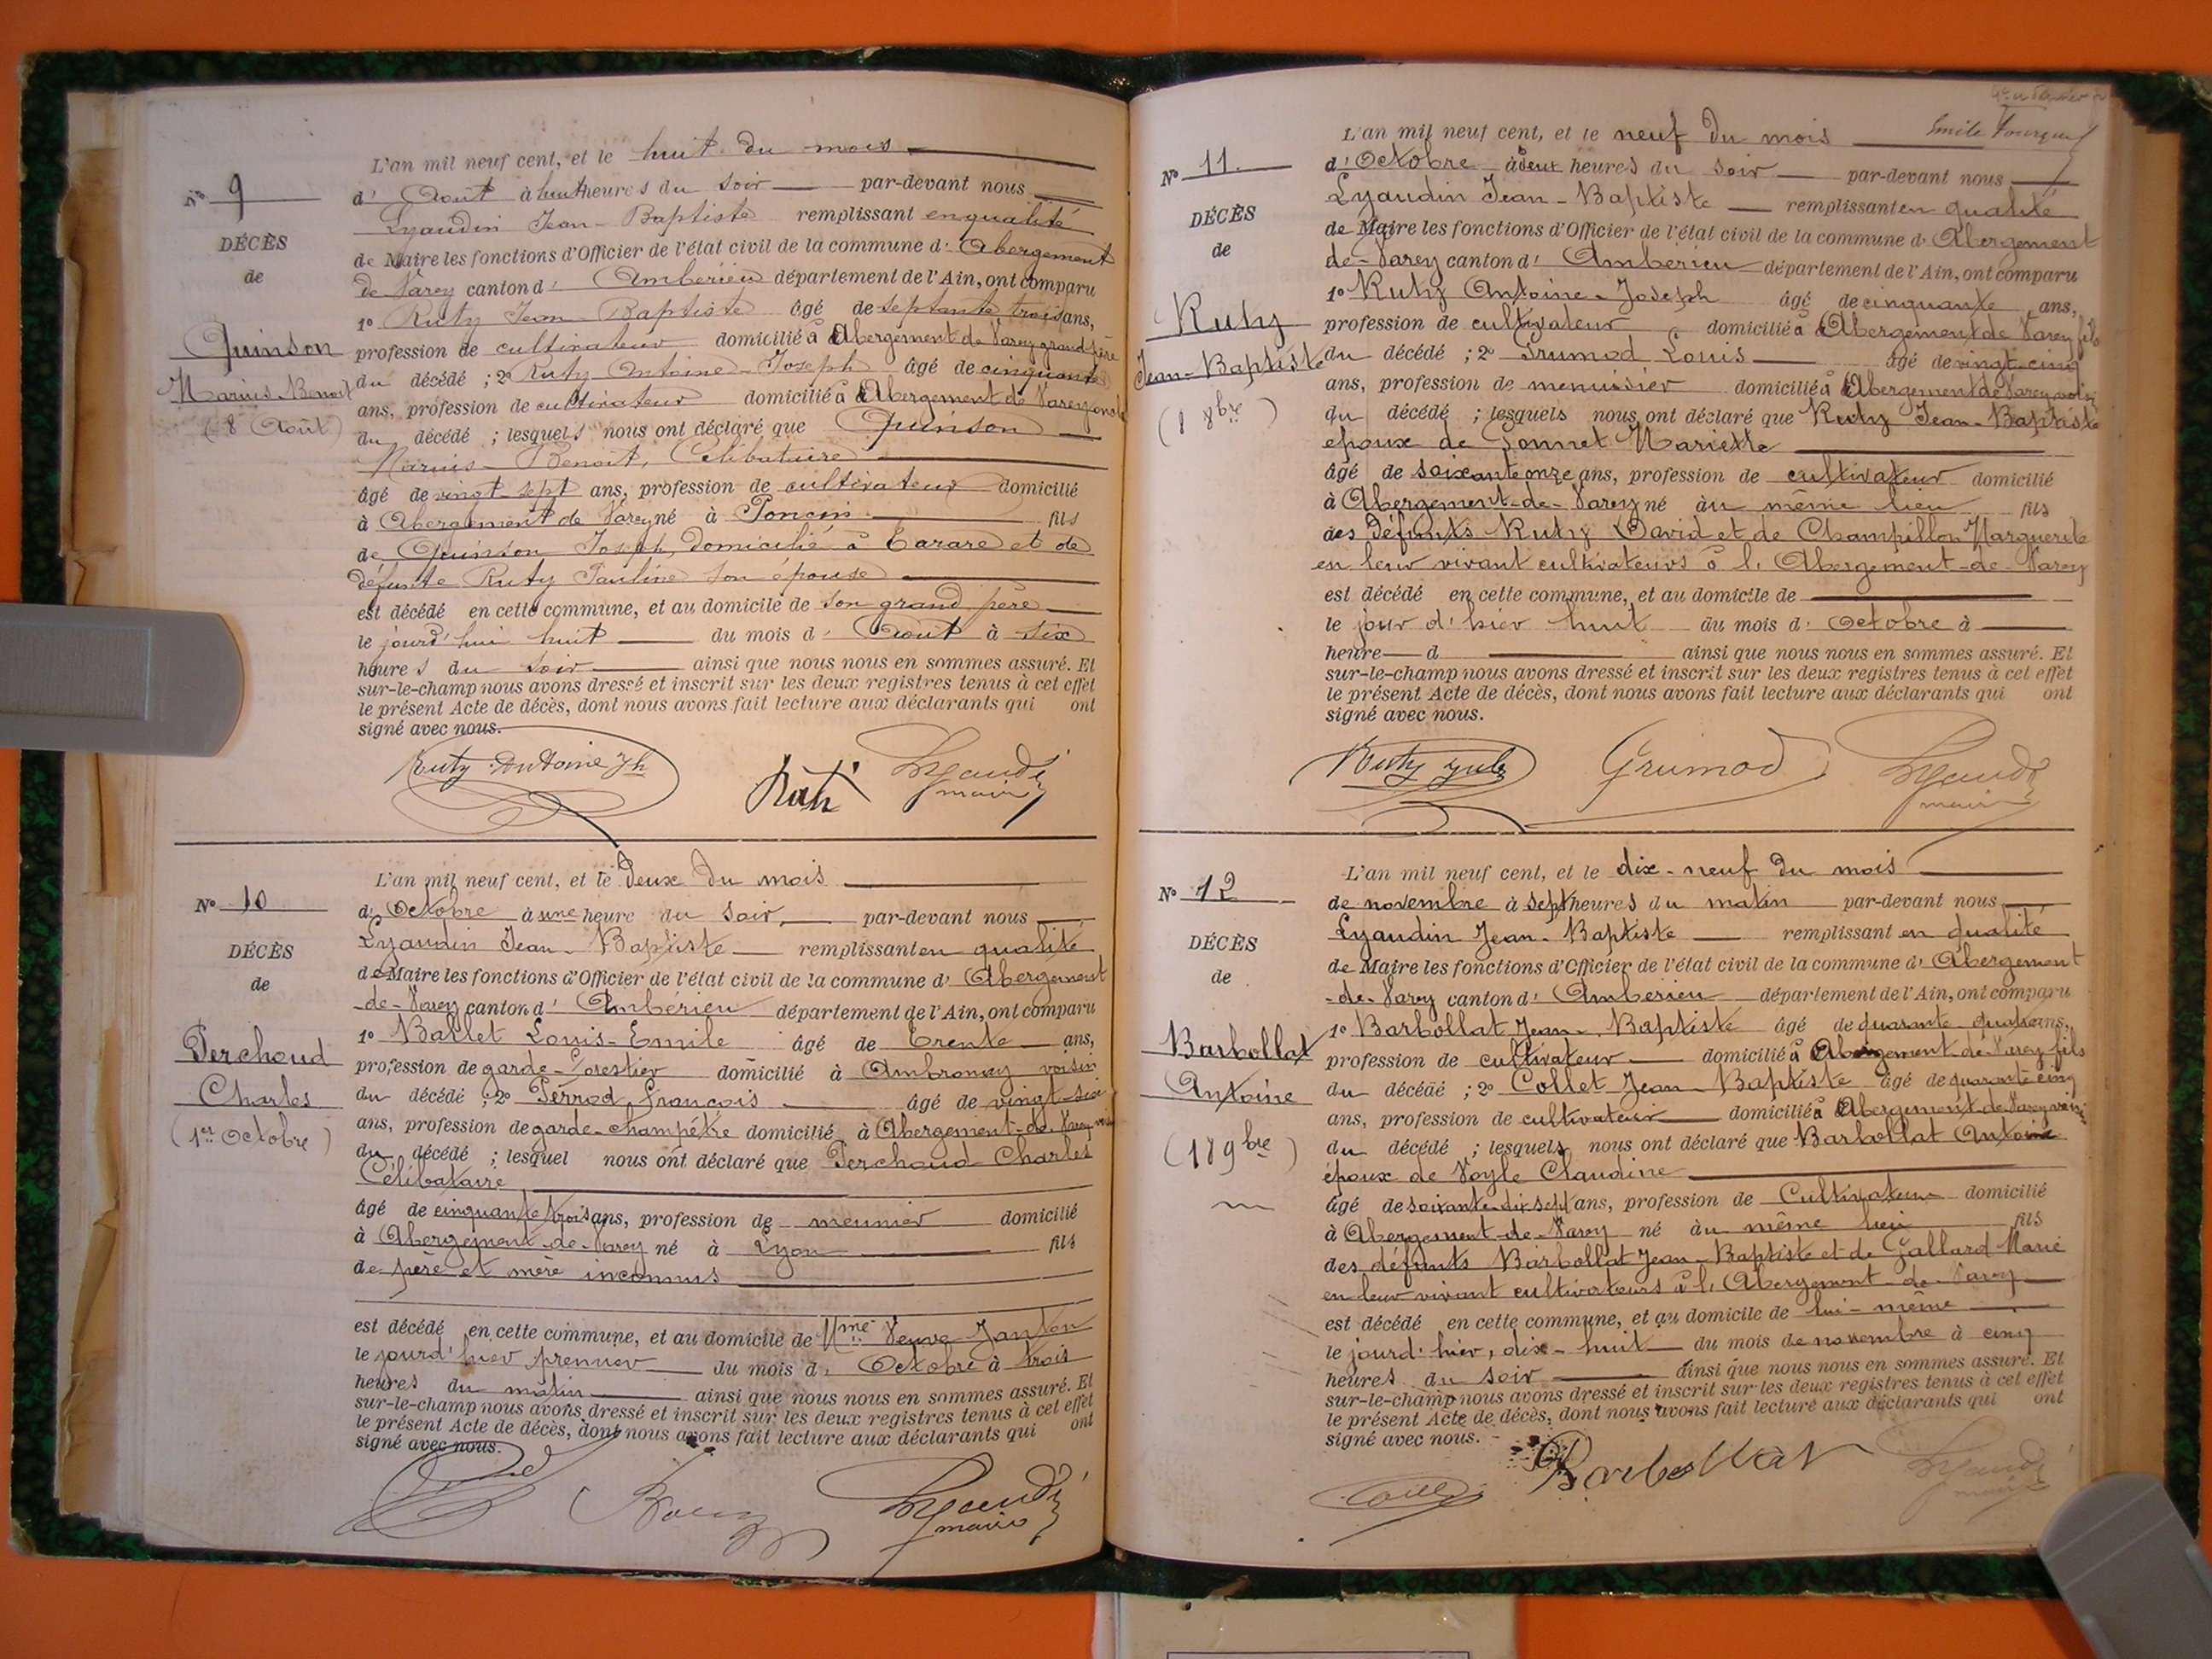 L'an mil neuf cent, et le huit du mois
N° 9
d'Août à huit heures du soir par-devant nous
Lyaudin Jean-Baptiste remplissant en qualité
DÉCÈS
de Maire les fonctions d'Officier de l'état civil de la commune d'Abergement
de
de Varey canton d'Ambérieu département de l'Ain, ont comparu
1° Ruty Jean-Baptiste âgé de septante trois ans,
Quinson
profession de cultivateur domicilié à Abergement de Varey grand père
Marius-Benoit
du décédé ; 2° Ruty Antoine-Joseph âgé de cinquante
(8 Août)
ans, profession de cultivateur domicilié à Abergement de Varey oncle
du décédé ; lesquels nous ont déclaré que Quinson
Marius-Benoit, Célibataire
âgé de vingt-sept ans, profession de cultivateur domicilié
à Abergement de Varey né à Poncin fils
de Quinson Joseph, domicilié à Tarare et de
défunte Ruty Pauline son épouse
est décédé en cette commune, et au domicile de son grand père
le jourd'hui huit du mois d'Août à six
heures du soir ainsi que nous nous en sommes assuré. Et
sur-le-champ nous avons dressé et inscrit sur les deux registres tenus à cet effet
le présent Acte de décès, dont nous avons fait lecture aux déclarants qui ont
signé avec nous.
Ruty Antoine Jh Ruti Lyaudin
maire
L'an mil neuf cent, et le deux du mois
N° 10
d'Octobre à une heure du soir, par-devant nous
Lyaudin Jean-Baptiste remplissant en qualité
DÉCÈS
de Maire les fonctions d'Officier de l'état civil de la commune d'Abergement
de
-de-Varey canton d'Ambérieu département de l'Ain, ont comparu
1° Ballet Louis-Emile âgé de trente ans,
Perchoud
profession de garde-forestier domicilié à Ambronay voisin
Charles
du décédé ; 2° Perrod François âgé de vingt-six
(1er Octobre)
ans, profession de garde-champêtre domicilié à Abergement-de-Varey voisin
du décédé ; lesquel nous ont déclaré que Perchoud Charles
Célibataire
âgé de cinquante trois ans, profession de meunier domicilié
à Abergement-de-Varey né à Lyon fils
de père et mère inconnus
est décédé en cette commune, et au domicile de Mme Veuve Janton
le jourd'hier premier du mois d'Octobre à trois
heures du matin ainsi que nous nous en sommes assuré. Et
sur-le-champ nous avons dressé et inscrit sur les deux registres tenus à cet effet
le présent Acte de décès, dont nous avons fait lecture aux déclarants qui ont
signé avec nous.
Lyaudin
maire
Emile
L'an mil neuf cent, et le neuf du mois
N° 11
d'Octobre à deux heures du soir par-devant nous
Lyaudin Jean-Baptiste remplissant en qualité
DÉCÈS
de Maire les fonctions d'Officier de l'état civil de la commune d'Abergement
de
de-Varey canton d'Ambérieu département de l'Ain, ont comparu
1° Ruty Antoine-Joseph âgé de cinquante ans,
Ruty
profession de cultivateur domicilié à Abergement de Varey fils
Jean-Baptiste
du décédé ; 2° Grumod Louis âgé de vingt-cinq
ans, profession de menuisier domicilié à Abergement de Varey voisin
(8 8bre)
du décédé ; lesquels nous ont déclaré que Ruty Jean-Baptiste
époux de Bonnet Mariette
âgé de soixante onze ans, profession de cultivateur domicilié
à Abergement-de-Varey né au même lieu fils
des défunts Ruty David et de Champillon Marguerite
en leur vivant cultivateurs à l'Abergement-de-Varey
est décédé en cette commune, et au domicile de
le jour d'hier huit du mois d'Octobre à
heure d ainsi que nous nous en sommes assuré. Et
sur-le-champ nous avons dressé et inscrit sur les deux registres tenus à cet effet
le présent Acte de décès, dont nous avons fait lecture aux déclarants qui ont
signé avec nous.
Ruty Grumod Lyaudin
maire
L'an mil neuf cent, et le dix-neuf du mois
N° 12
de novembre à sept heures du matin par-devant nous
Lyaudin Jean-Baptiste remplissant en qualité
DÉCÈS
de Maire les fonctions d'Officier de l'état civil de la commune d'Abergement
de
-de-Varey canton d'Ambérieu département de l'Ain, ont comparu
1° Barbollat Jean-Baptiste âgé de quarante quatre ans,
Barbollat
profession de cultivateur domicilié à Abergement-de-Varey fils
Antoine
du décédé ; 2° Collet Jean-Baptiste âgé de quarante cinq
ans, profession de cultivateur domicilié à Abergement-de-Varey voisin
(18 9bre)
du décédé ; lesquels nous ont déclaré que Barbollat Antoine
époux de Voyle Claudine
âgé de soixante-dix sept ans, profession de Cultivateur domicilié
à Abergement-de-Varey né au même lieu fils
des défunts Barbollat Jean-Baptiste et de Gallard Marie
en leur vivant cultivateurs à l'Abergement-de-Varey
est décédé en cette commune, et au domicile de lui-même
le jourd'hier, dix-huit du mois de novembre à cinq
heures du soir ainsi que nous nous en sommes assuré. Et
sur-le-champ nous avons dressé et inscrit sur les deux registres tenus à cet effet
le présent Acte de décès, dont nous avons fait lecture aux déclarants qui ont
signé avec nous.
Collet Barbollat Lyaudin
maire